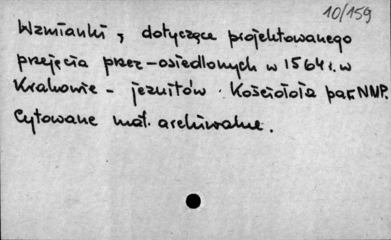 10/159
Wzmianki, dotyczące projektowanego
przejęcia przez osiedlonych w 1564 r. w
Krakowie - jezuitów. Kościoła par. NNP.
Cytowane mat. archiwalne.